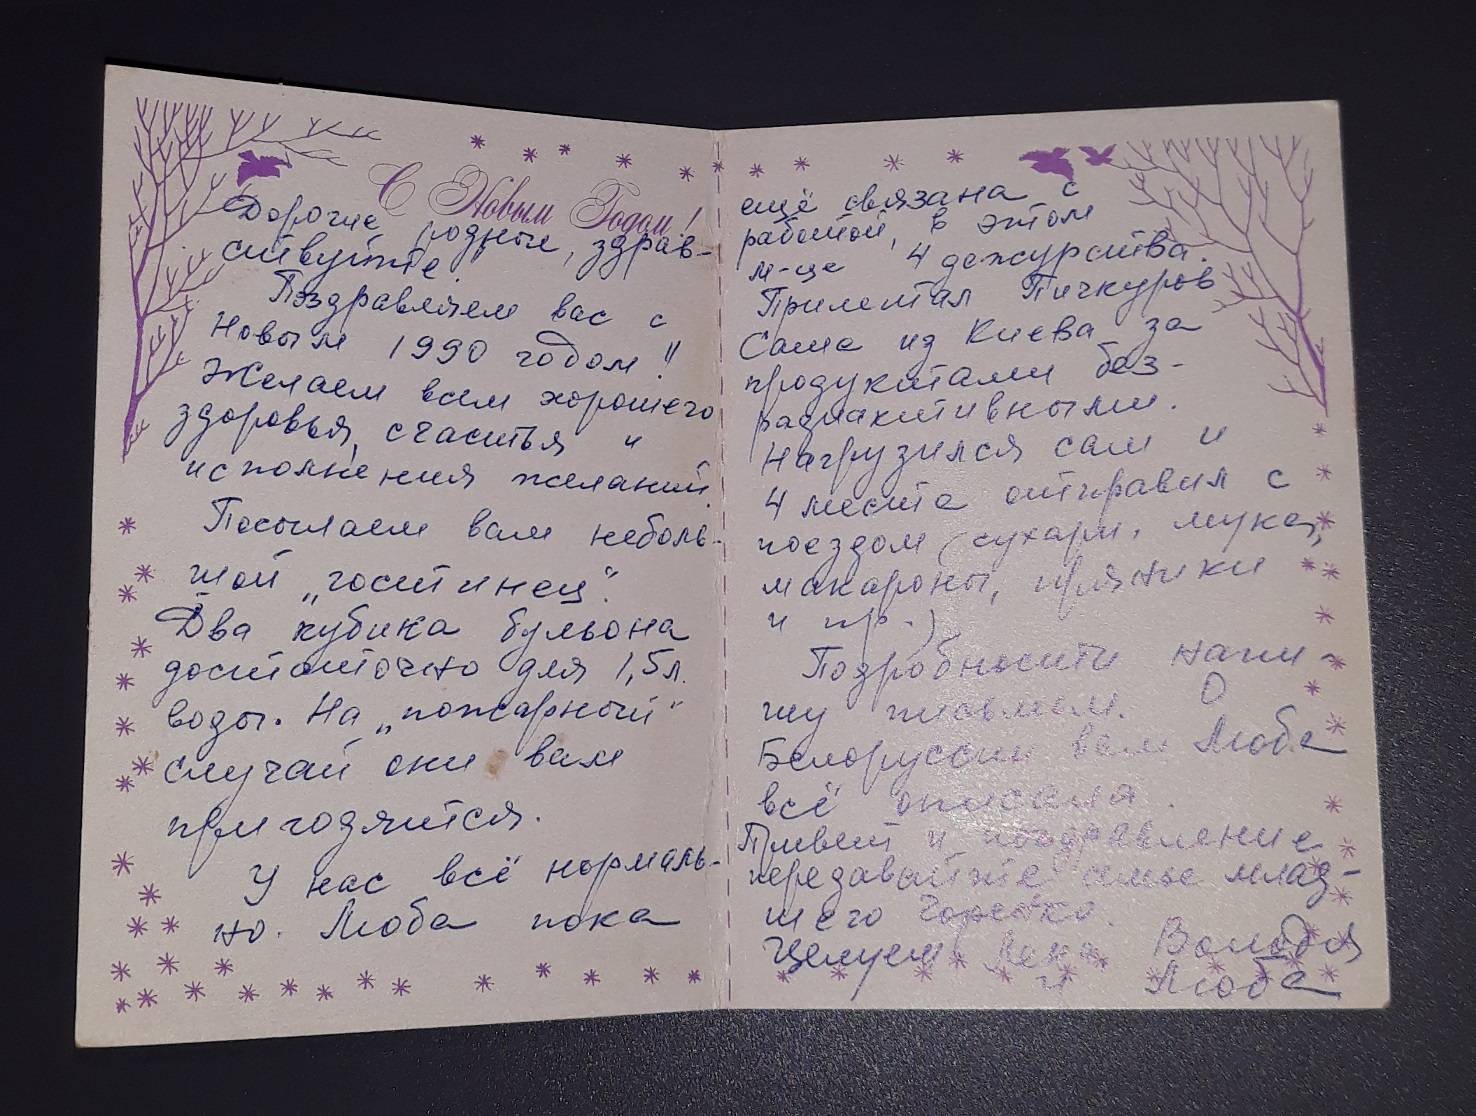 С Новым Годом!
Дорогие родные, здрав-
ствуйте
Поздравляем вас с
Новым 1990 годом!!
Желаем всем хорошего
здоровья, счастья и
исполнения желаний.
Посылаем вам неболь-
шой „гостинец“.
Два кубика бульона
достаточно для 1,5 л.
воды. На „пожарный“
случай они вам
пригодятся.
У нас всё нормаль-
но. Люба пока
ещё связана с
работой, в этом
м-це 4 дежурства.
Прилетал Пичкуров
Саша из Киева за
продуктами без-
радиактивными.
Нагрузился сам и
4 места отправил с
поездом (сухари, мука,
макароны, пряники
и пр.)
Подробности напи-
шу письмом. О
Белоруссии вам Люба
всё описала.
Привет и поздравление
передавайте семье млад-
шего
Целуем Лена, Володя
и Люба